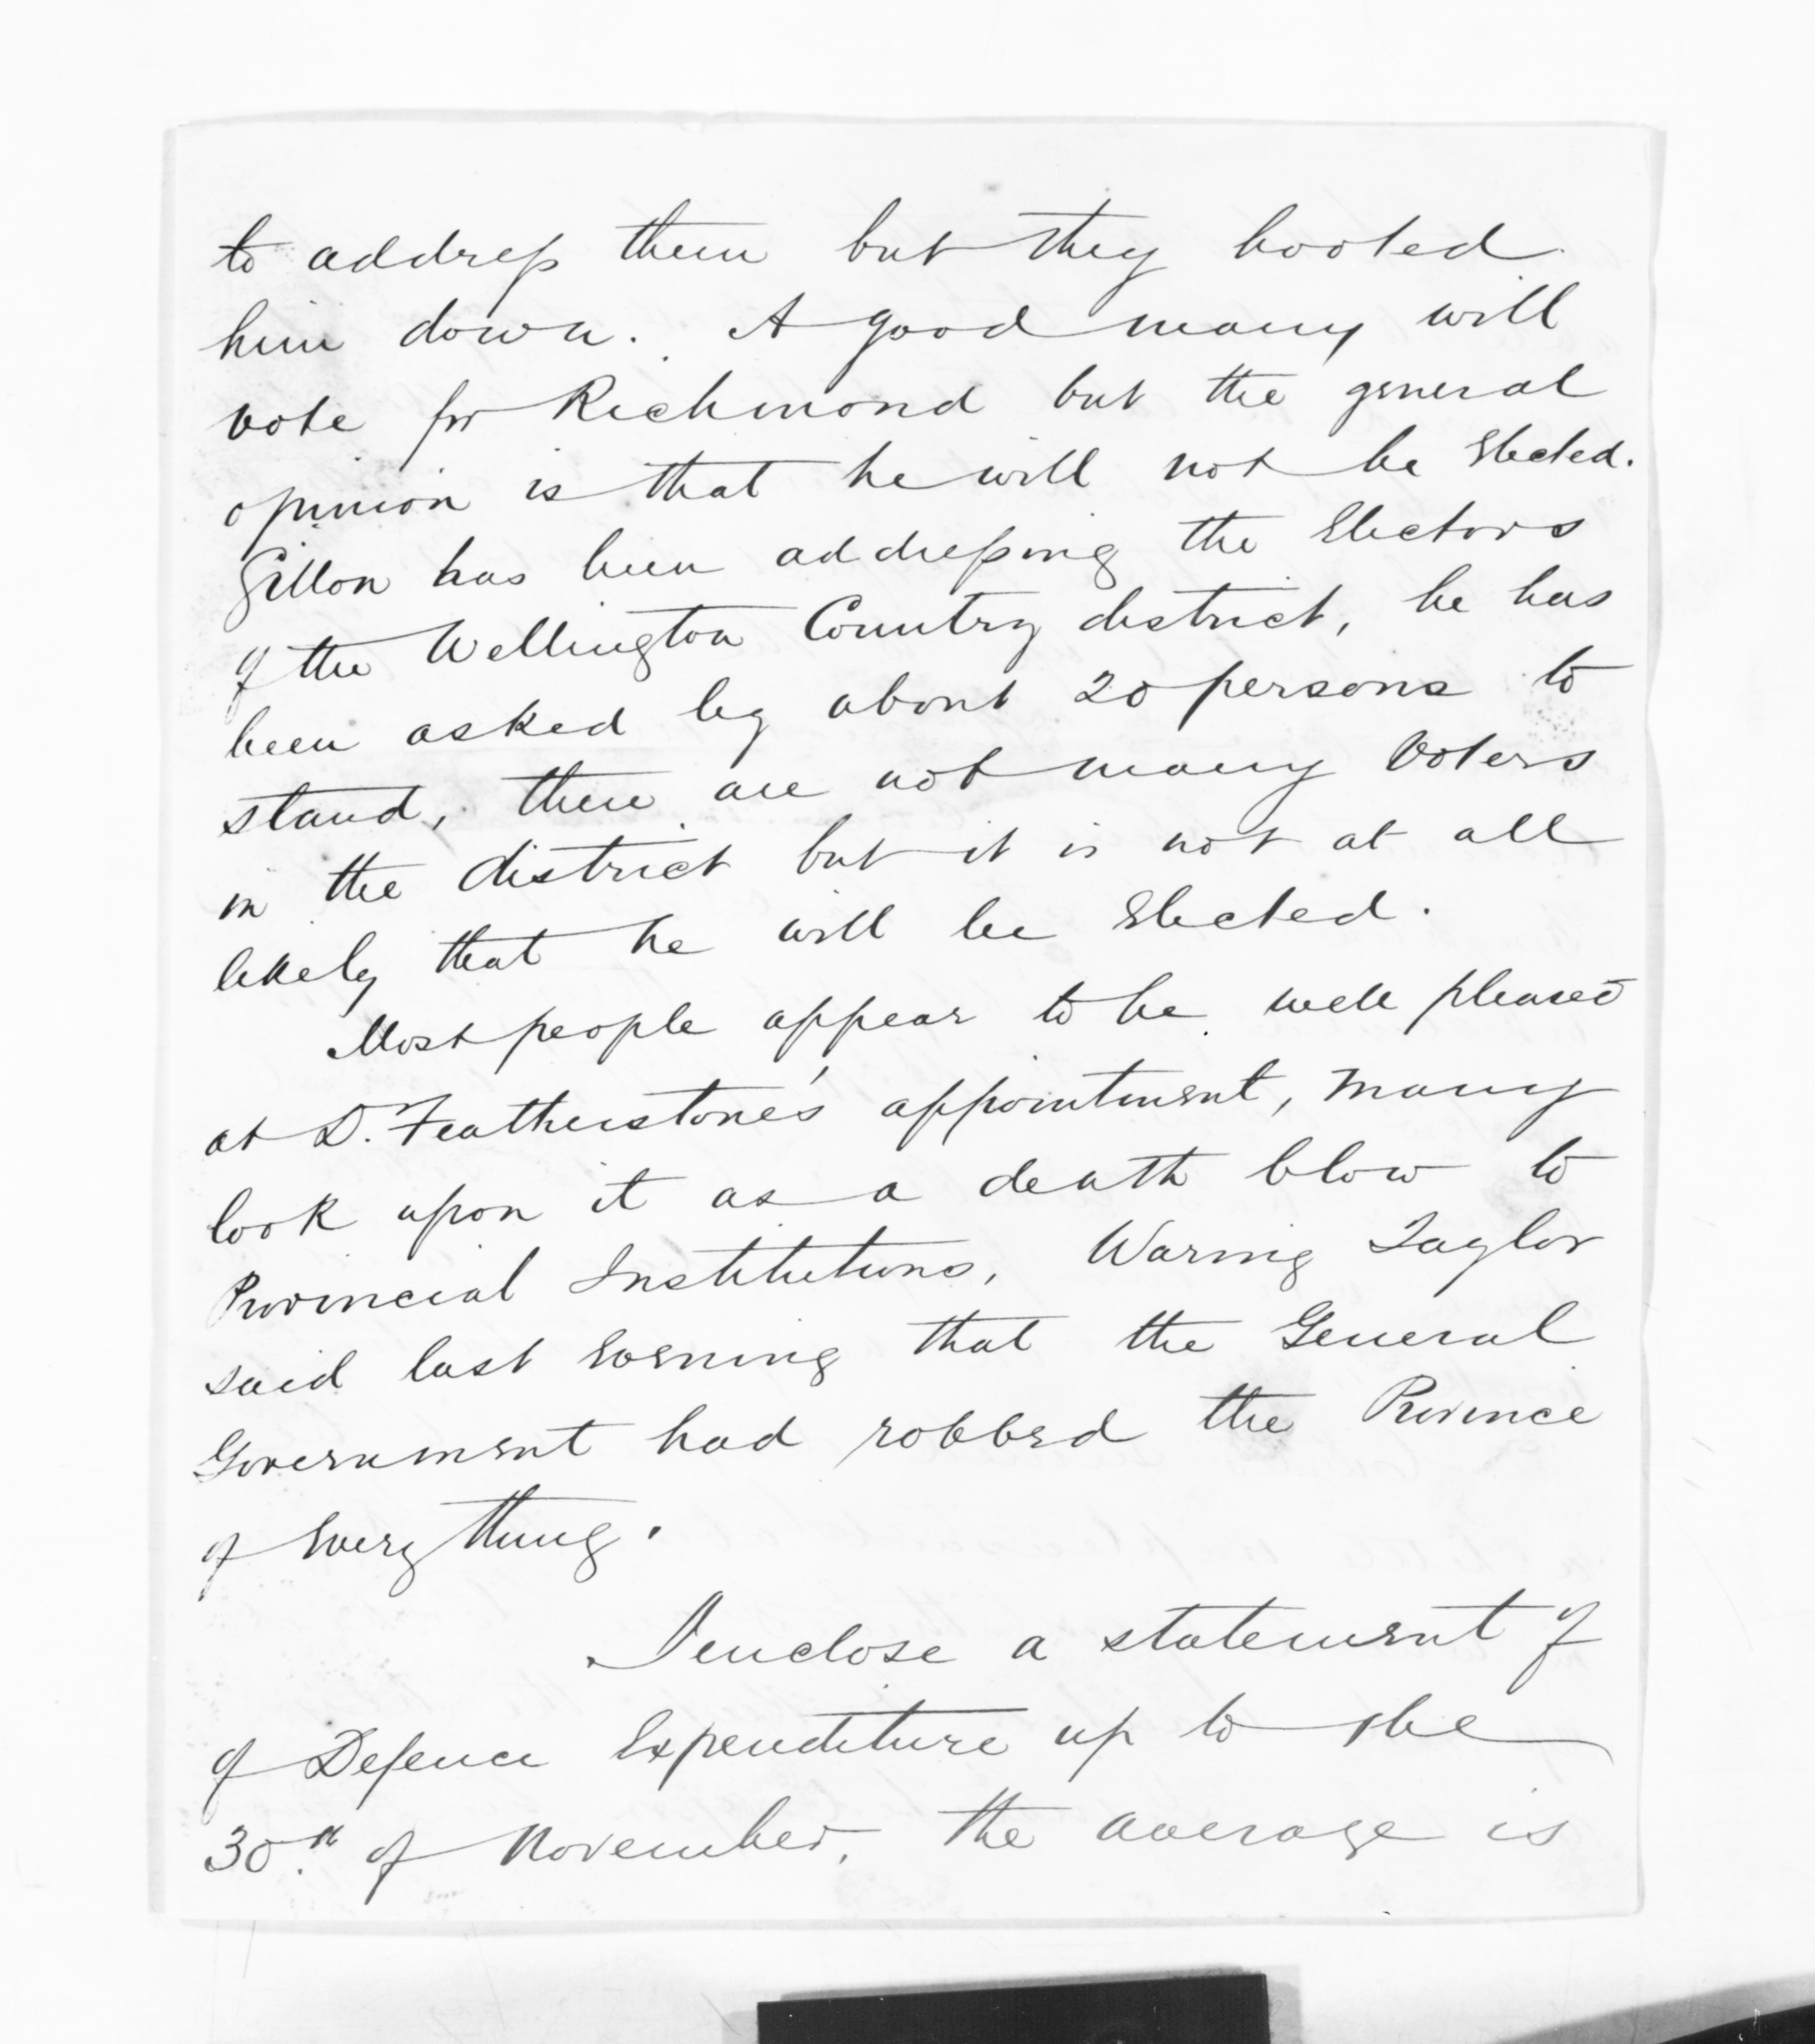 to address them but they hooted
him down. A good many will
vote for Richmond but the general
opinion is that he will not be Elected.
Gillon has been addressing the Electors
of the Wellington Country district, he has
been asked by about 20 persons to
stand, there are not many Voters
in the district but it is not at all
likely that he will be Elected.
Most people appear to be well pleased
at D. Featherstone's appointment, many
look upon it as a death blow to
Provincial Institutions, Waring Taylor
said last Evening that the General
Government had robbed the Province
of Every thing.
I enclose a statement of
of Defence Expenditure up to the
30th of November, the average is